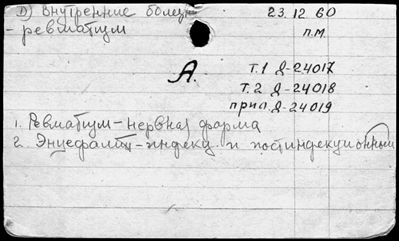 D) Внутренние болезн 23.12.60
- ревматизм п.м.
А. т.1 Д-24017
т.2 Д-24018
прил Д-24019
1. Ревматизм - нервная форма
2. Энцефалит - индекц и постиндекционный